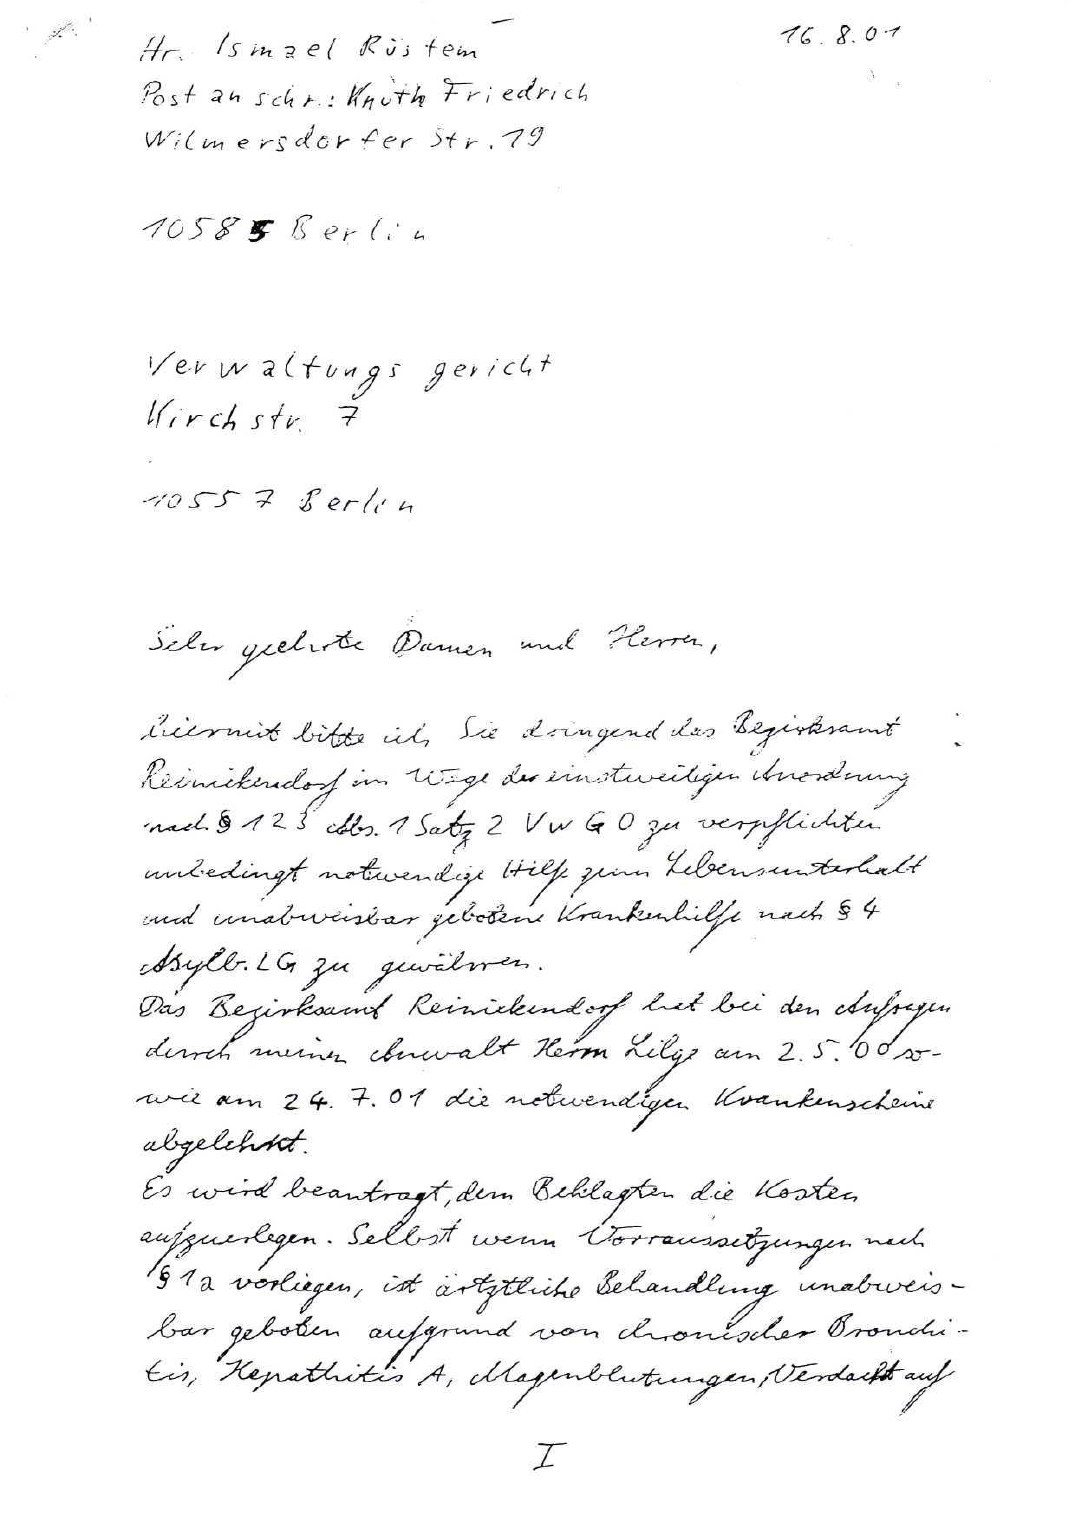 16.8.01
Hr. Ismael Rüstem
Postanschr.: Knuth Friedrich
Wilmersdorfer Str. 19
10585 Berlin
Verwaltungsgericht
Kirchstr. 7
10557 Berlin
Sehr geehrte Damen und Herren,
hiermit bitte ich Sie dringend das Bezirksamt
Reinickendorf im Wege der einstweiligen Anordnung
nach § 123 Abs. 1 Satz 2 VwGO zu verpflichten
unbedingt notwendige Hilfe zum Lebensunterhalt
und unabweisbar gebotene Krankenhilfe nach § 4
Asylb.LG zu gewähren.
Das Bezirksamt Reinickendorf hat bei den Anfragen
durch meinen Anwalt Herrn Lilge am 2.5.00 so-
wie am 24.7.01 die notwendigen Krankenscheine
abgelehnt.
Es wird beantragt, dem Beklagten die Kosten
aufzuerlegen. Selbst wenn Vorraussetzungen nach
§ 1a vorliegen, ist ärtztliche Behandlung unabweis-
bar geboten aufgrund von chronischer Bronchi-
tis, Hepathitis A, Magenblutungen, Verdacht auf
I